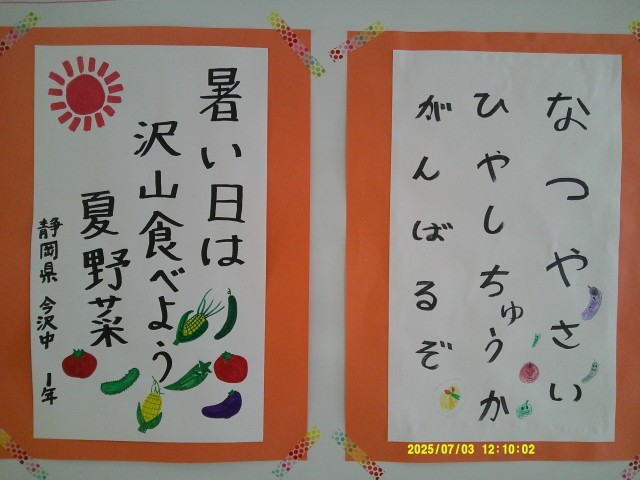 なつやさい
ひやしちゅうか
がんばるぞ
暑い日は
沢山食べよう
夏野菜
静岡県 今沢中 1年
2025/07/03 12:10:02